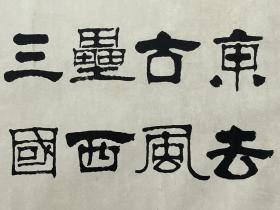 東去
古風
壘西
三國